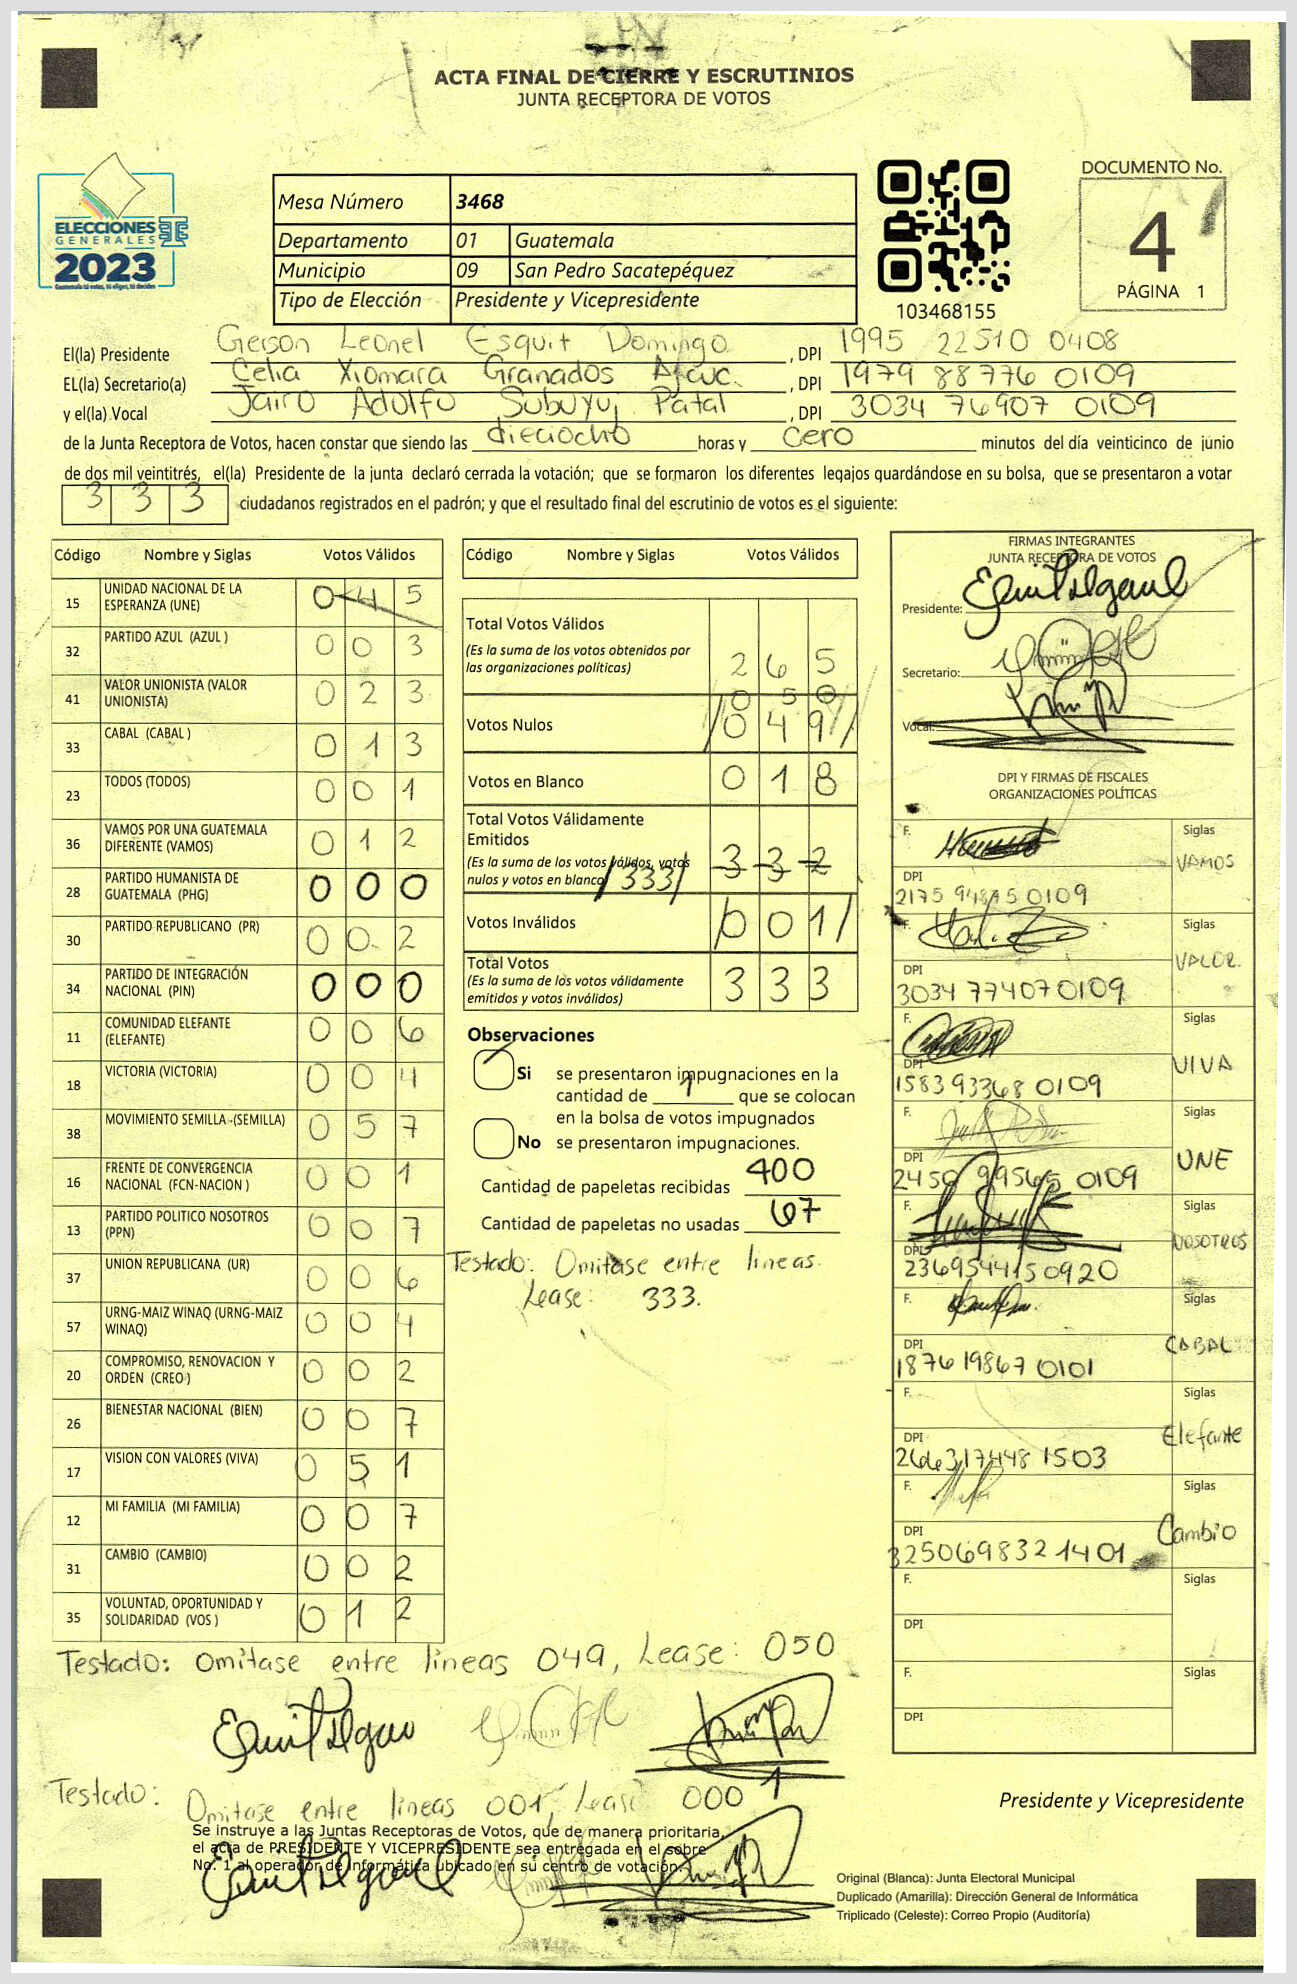 ACTA FINAL DE CIERRE Y ESCRUTINIOS
JUNTA RECEPTORA DE VOTOS
ELECCIONES
GENERALES
2023
Guatemala tú votas, tú eliges, tú decides
Mesa Número 3468
Departamento 01 Guatemala
Municipio 09 San Pedro Sacatepéquez
Tipo de Elección Presidente y Vicepresidente
103468155
DOCUMENTO No.
4
PÁGINA 1
El(la) Presidente Gerson Leonel Esquit Domingo, DPI 1995 22510 0408
EL(la) Secretario(a) Celia Xiomara Granados, DPI 1979 88776 0109
y el(la) Vocal Jairo Adolfo Subuyuj Patal, DPI 3034 76907 0109
de la Junta Receptora de Votos, hacen constar que siendo las dieciocho horas y cero minutos del día veinticinco de junio
de dos mil veintitrés, el(la) Presidente de la junta declaró cerrada la votación; que se formaron los diferentes legajos guardándose en su bolsa, que se presentaron a votar
3 3 3 ciudadanos registrados en el padrón; y que el resultado final del escrutinio de votos es el siguiente:
Código Nombre y Siglas Votos Válidos
15 UNIDAD NACIONAL DE LA ESPERANZA (UNE) 0 4 5
32 PARTIDO AZUL (AZUL ) 0 0 3
41 VALOR UNIONISTA (VALOR UNIONISTA) 0 2 3
33 CABAL (CABAL ) 0 1 3
23 TODOS (TODOS) 0 0 1
36 VAMOS POR UNA GUATEMALA DIFERENTE (VAMOS) 0 1 2
28 PARTIDO HUMANISTA DE GUATEMALA (PHG) 0 0 0
30 PARTIDO REPUBLICANO (PR) 0 0 2
34 PARTIDO DE INTEGRACIÓN NACIONAL (PIN) 0 0 0
11 COMUNIDAD ELEFANTE (ELEFANTE) 0 0 6
18 VICTORIA (VICTORIA) 0 0 4
38 MOVIMIENTO SEMILLA (SEMILLA) 0 5 7
16 FRENTE DE CONVERGENCIA NACIONAL (FCN-NACION ) 0 0 1
13 PARTIDO POLITICO NOSOTROS (PPN) 0 0 7
37 UNION REPUBLICANA (UR) 0 0 6
57 URNG-MAIZ WINAQ (URNG-MAIZ WINAQ) 0 0 4
20 COMPROMISO, RENOVACION Y ORDEN (CREO) 0 0 2
26 BIENESTAR NACIONAL (BIEN) 0 0 7
17 VISION CON VALORES (VIVA) 0 5 1
12 MI FAMILIA (MI FAMILIA) 0 0 7
31 CAMBIO (CAMBIO) 0 0 2
35 VOLUNTAD, OPORTUNIDAD Y SOLIDARIDAD (VOS ) 0 1 2
Código Nombre y Siglas Votos Válidos
Total Votos Válidos
(Es la suma de los votos obtenidos por
las organizaciones políticas) 2 6 5
0 5 0
Votos Nulos /0 4 9/
Votos en Blanco 0 1 8
Total Votos Válidamente
Emitidos
(Es la suma de los votos válidos, votos
nulos y votos en blanco) /333/ 3 3 2
Votos Inválidos /0 0 1/
Total Votos
(Es la suma de los votos válidamente
emitidos y votos inválidos) 3 3 3
Observaciones
Si se presentaron impugnaciones en la
cantidad de 1 que se colocan
en la bolsa de votos impugnados
No se presentaron impugnaciones.
Cantidad de papeletas recibidas 400
Cantidad de papeletas no usadas 67
Testado: Omitase entre lineas.
Lease: 333.
FIRMAS INTEGRANTES
JUNTA RECEPTORA DE VOTOS
Presidente:
Secretario:
Vocal:
DPI Y FIRMAS DE FISCALES
ORGANIZACIONES POLÍTICAS
F. Siglas
VAMOS
DPI
0109
F. Siglas
VALOR.
DPI
3034 77407 0109
F. Siglas
VIVA
DPI
1583 93368 0109
F. Siglas
UNE
DPI
2450 99565 0109
F. Siglas
NOSOTROS
DPI
2369544150920
F. Siglas
CABAL
DPI
1876 19867 0101
F. Siglas
Elefante
DPI
266317448 1503
F. Siglas
Cambio
DPI
3250698321401
F. Siglas
DPI
F. Siglas
DPI
Testado: Omitase entre lineas 049, Lease: 050
Testado: Omitase entre lineas 001, Lease 000
Se instruye a las Juntas Receptoras de Votos, que de manera prioritaria,
el acta de PRESIDENTE Y VICEPRESIDENTE sea entregada en el sobre
No. 1 al operador de informática ubicado en su centro de votación.
Presidente y Vicepresidente
Original (Blanca): Junta Electoral Municipal
Duplicado (Amarilla): Dirección General de Informática
Triplicado (Celeste): Correo Propio (Auditoría)